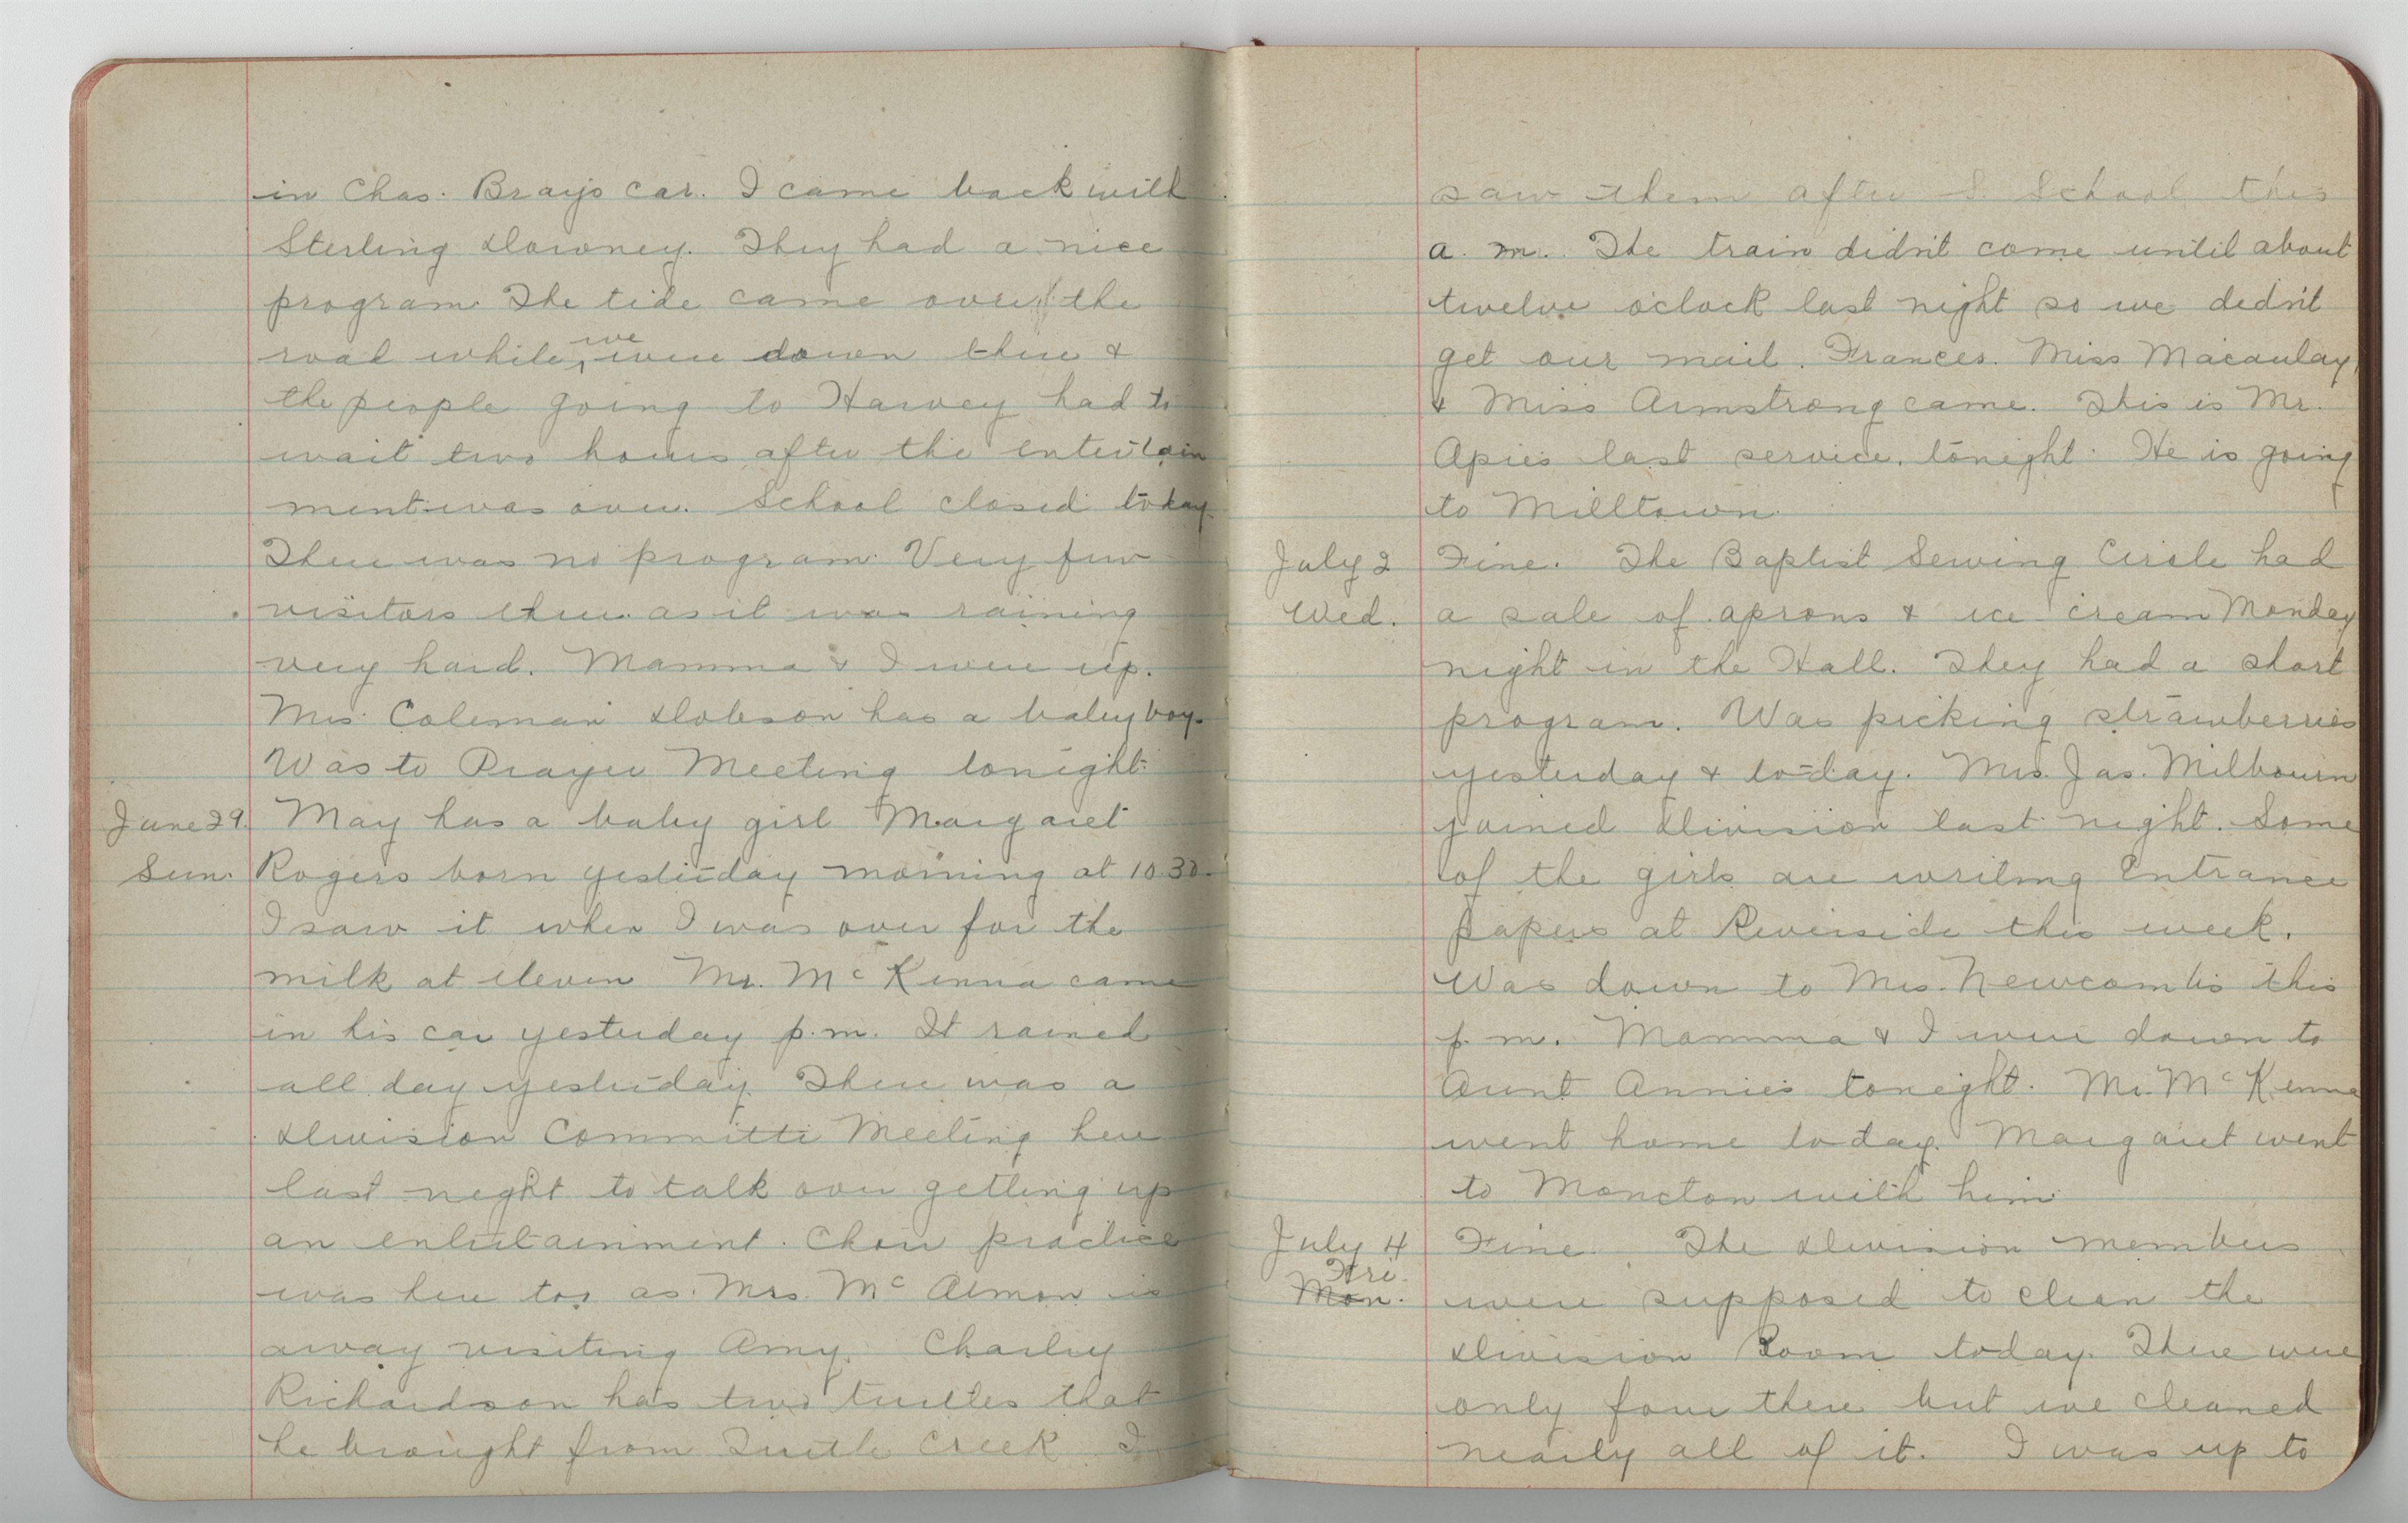 in Chas. Bray's car. I came back with
Sterling Downey. They had a nice
program. The tide came over the
road while we were down there &
the people going to Harvey had to
wait two hours after the entertain
ment was over. School closed today.
There was no program. Very few
visitors there as it was raining
very hard. Mamma & I were up.
Mrs. Coleman Dobson has a baby boy.
Was to Prayer Meeting tonight.
June 29. May has a baby girl Margaret
Sun. Rogers born yesterday morning at 10.30.
I saw it when I was over for the
milk at eleven Mr. McKenna came
in his car yesterday p.m. It rained
all day yesterday. There was a
Division Committe Meeting here
last night to talk over getting up
an entertainment. Choir practice
was here too as Mrs. McAlmon is
away visiting Amy. Charley
Richardson has two turtles that
he brought from Turtle Creek I
saw them after S. School this
a.m. The train didn't come until about
twelve o'clock last night so we didn't
get our mail. Frances. Miss Macaulay,
& Miss Armstrong came. This is Mr.
Apies last service tonight. He is going
to Milltown.
July 2 Fine. The Baptist Sewing Circle had
Wed. a sale of aprons & ice cream Monday
night in the Hall. They had a short
program. Was picking strawberries
yesterday & to-day. Mrs. Jas. Milbourn
joined Division last night. Some
of the girls are writing Entrance
papers at Riverside this week.
Was down to Mrs. Newcomb's this
p.m. Mamma & I were down to
Aunt Annie's tonight. Mr. McKenna
went home today. Margaret went
to Moncton with him.
July 4 Fine. The Division members
Fri.
Mon. were supposed to clean the
Division Room today. There were
only four there but we cleaned
nearly all of it. I was up to